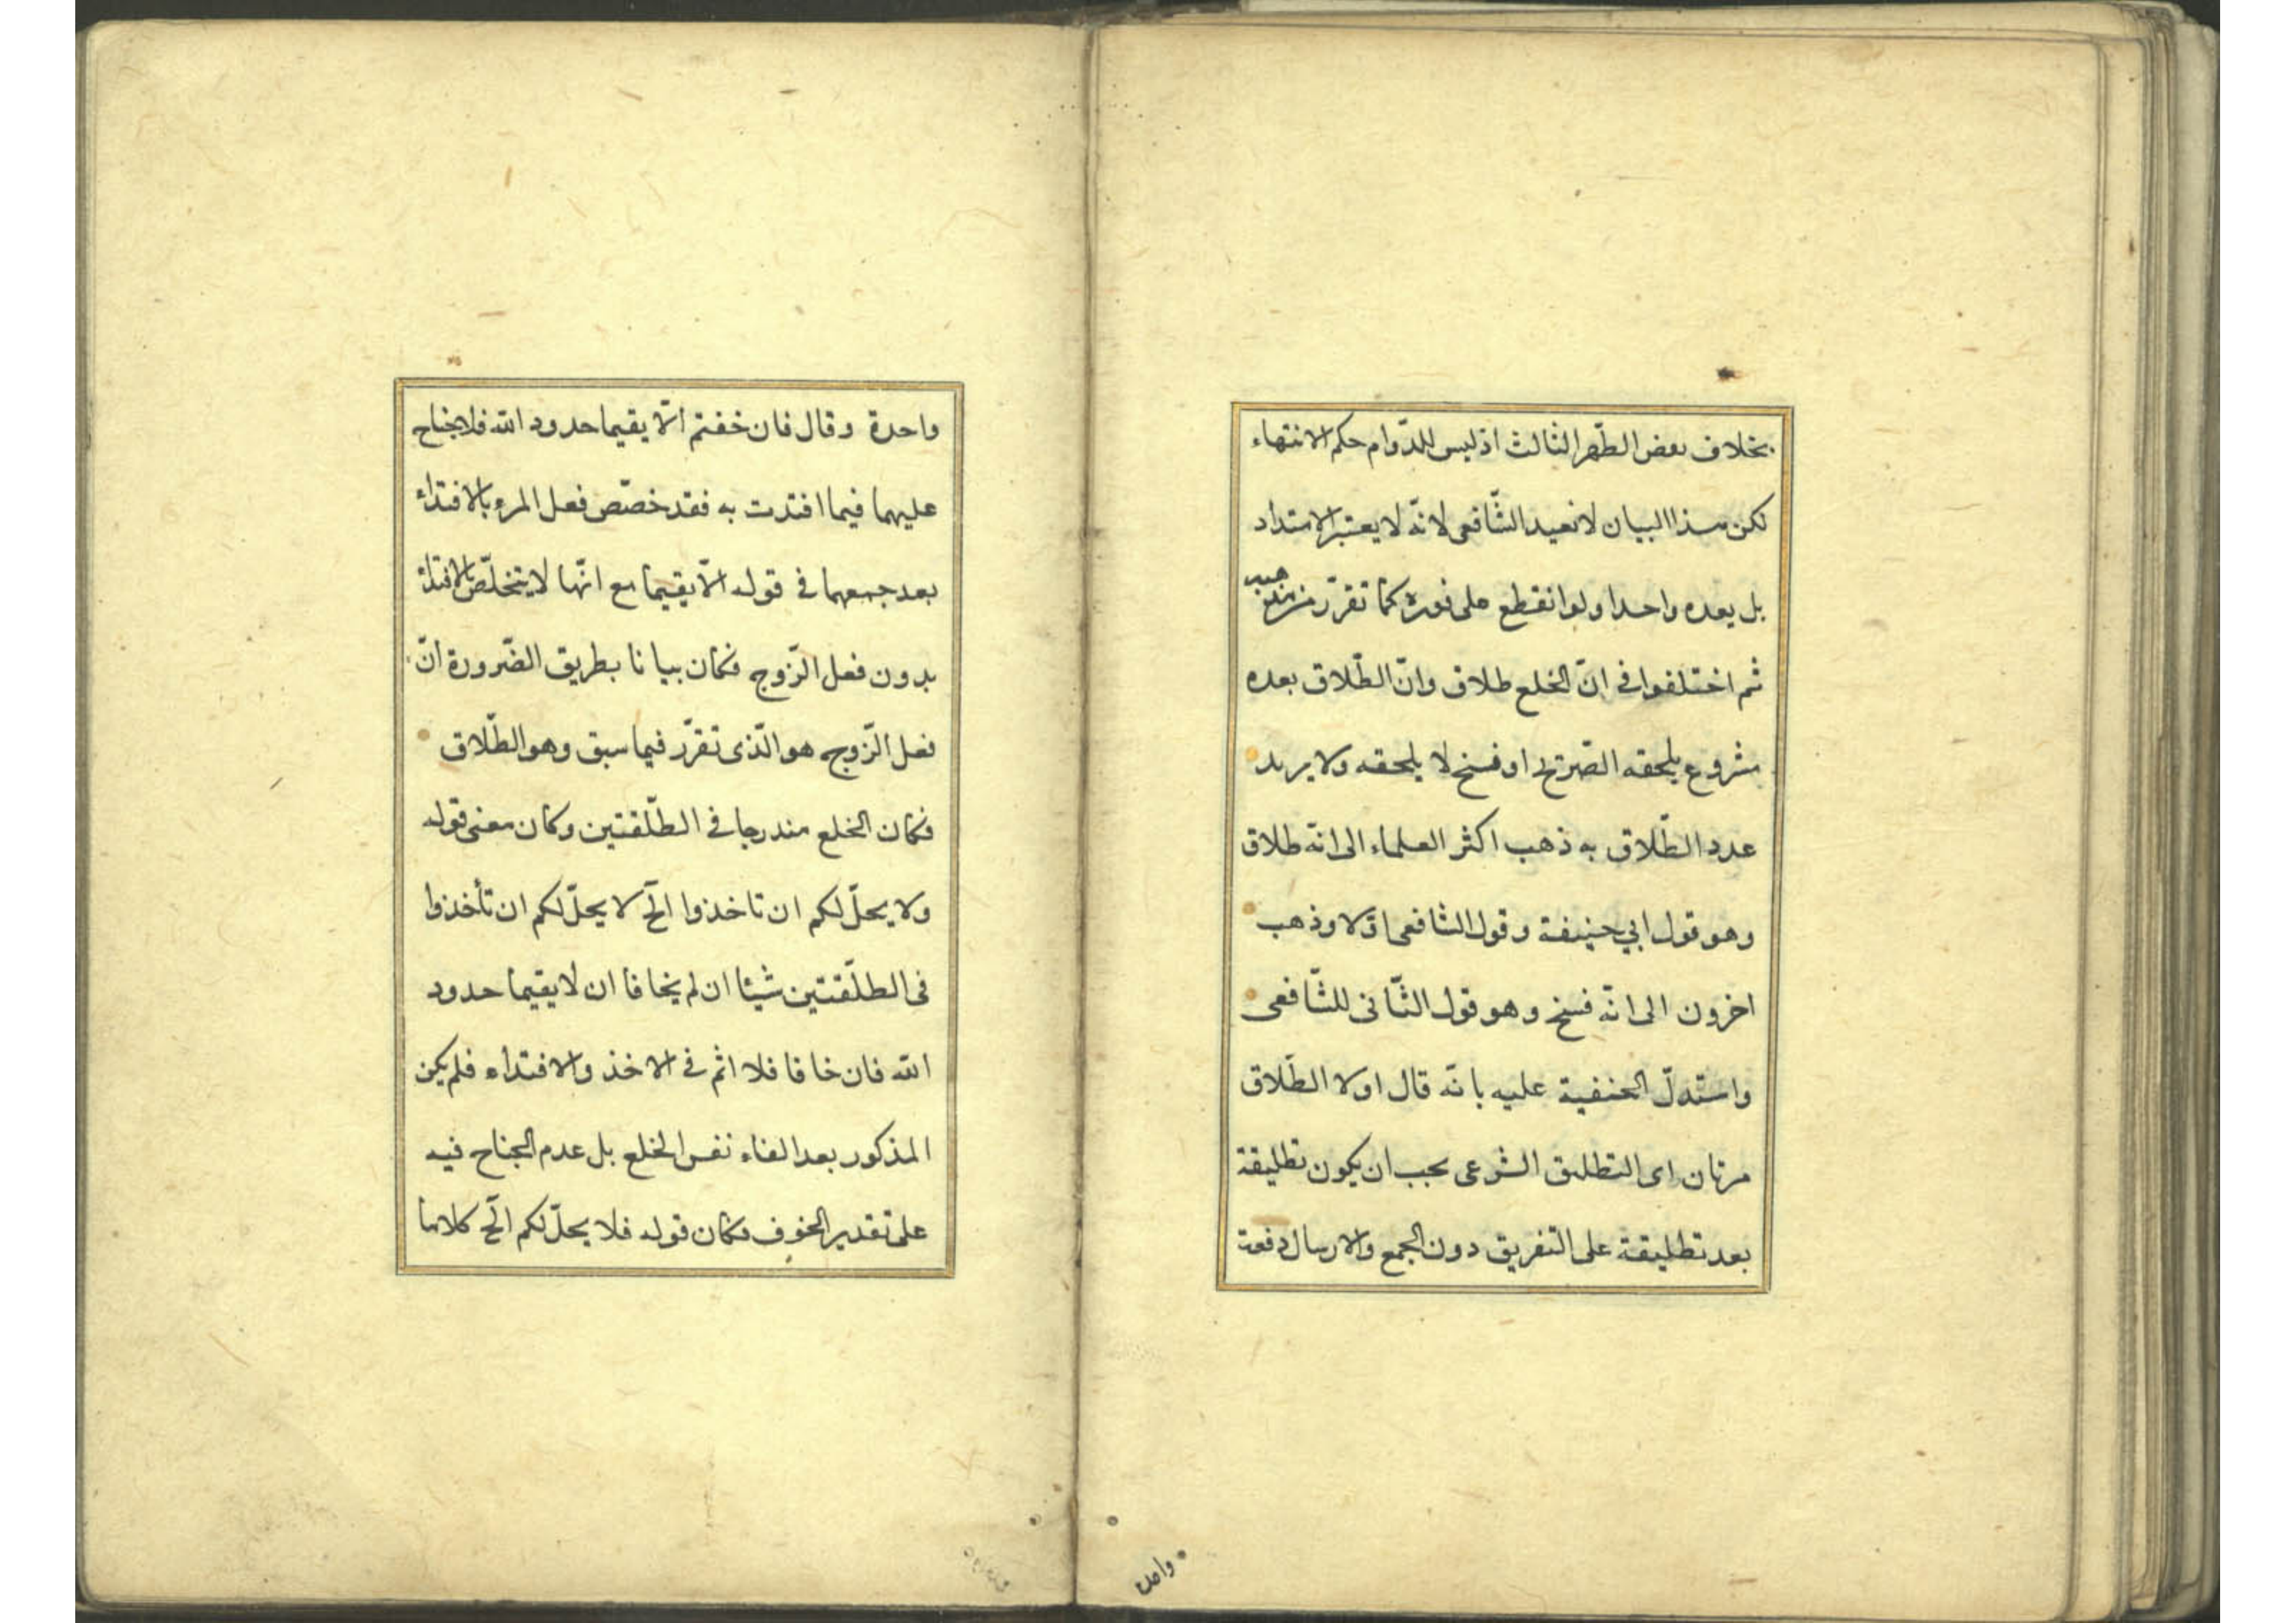 بخلاف بعض الطّهر الثالث اذ ليس للدّوام حكم الانتهاء
لكن هذا البيان لا نعيد الشّافعى لانّه لا يعتبر الامتداد
بل يعده واحدا ولو انقطع على فوره كما تقرّر من مذهبه
ثم اختلفوا فى انّ الخلع طلاق وانّ الطّلاق بعده
مشروع يلحقه الصّريح او فسخ لا يلحقه ولا يريد
عدد الطّلاق به ذهب اكثر العلماء الى انّه طلاق
وهو قول ابي حنيفة وقول الشافعى اوّلا وذهب
اخرون الى انّه فسخ وهو قول الثّانى للشّافعى
واستدلّ الحنفية عليه بانّه قال اولا الطّلاق
مرتان اى التطليق الشرعى يجب ان يكون تطليقة
بعد تطليقة على التفريق دون الجمع والارسال دفعة
واحدة
واحدة وقال فان خفتم الّا يقيما حدود الله فلا جناح
عليهما فيما افتدت به فقد خصّص فعل المرء بالافتداء
بعد جمعهما فى قوله الّا يقيما مع انّها لا يتخلّص بالافتداء
بدون فعل الزّوج فكان بيانا بطريق الضّرورة انّ
فعل الزّوج هو الّذى تقرّر فيما سبق وهو الطّلاق
فكان الخلع مندرجا فى الطّلقتين وكان معنى قوله
ولا يحلّ لكم ان تاخذوا الخ لا يحلّ لكم ان تأخذوا
فى الطلّقتين شيئا ان لم يخافا ان لا يقيما حدود
الله فان خافا فلا اثم فى الاخذ والافتداء فلم يكن
المذكور بعد الفاء نفس الخلع بل عدم الجناح فيه
على تقدير الخوف فكان قوله فلا يحلّ لكم الخ كلاما